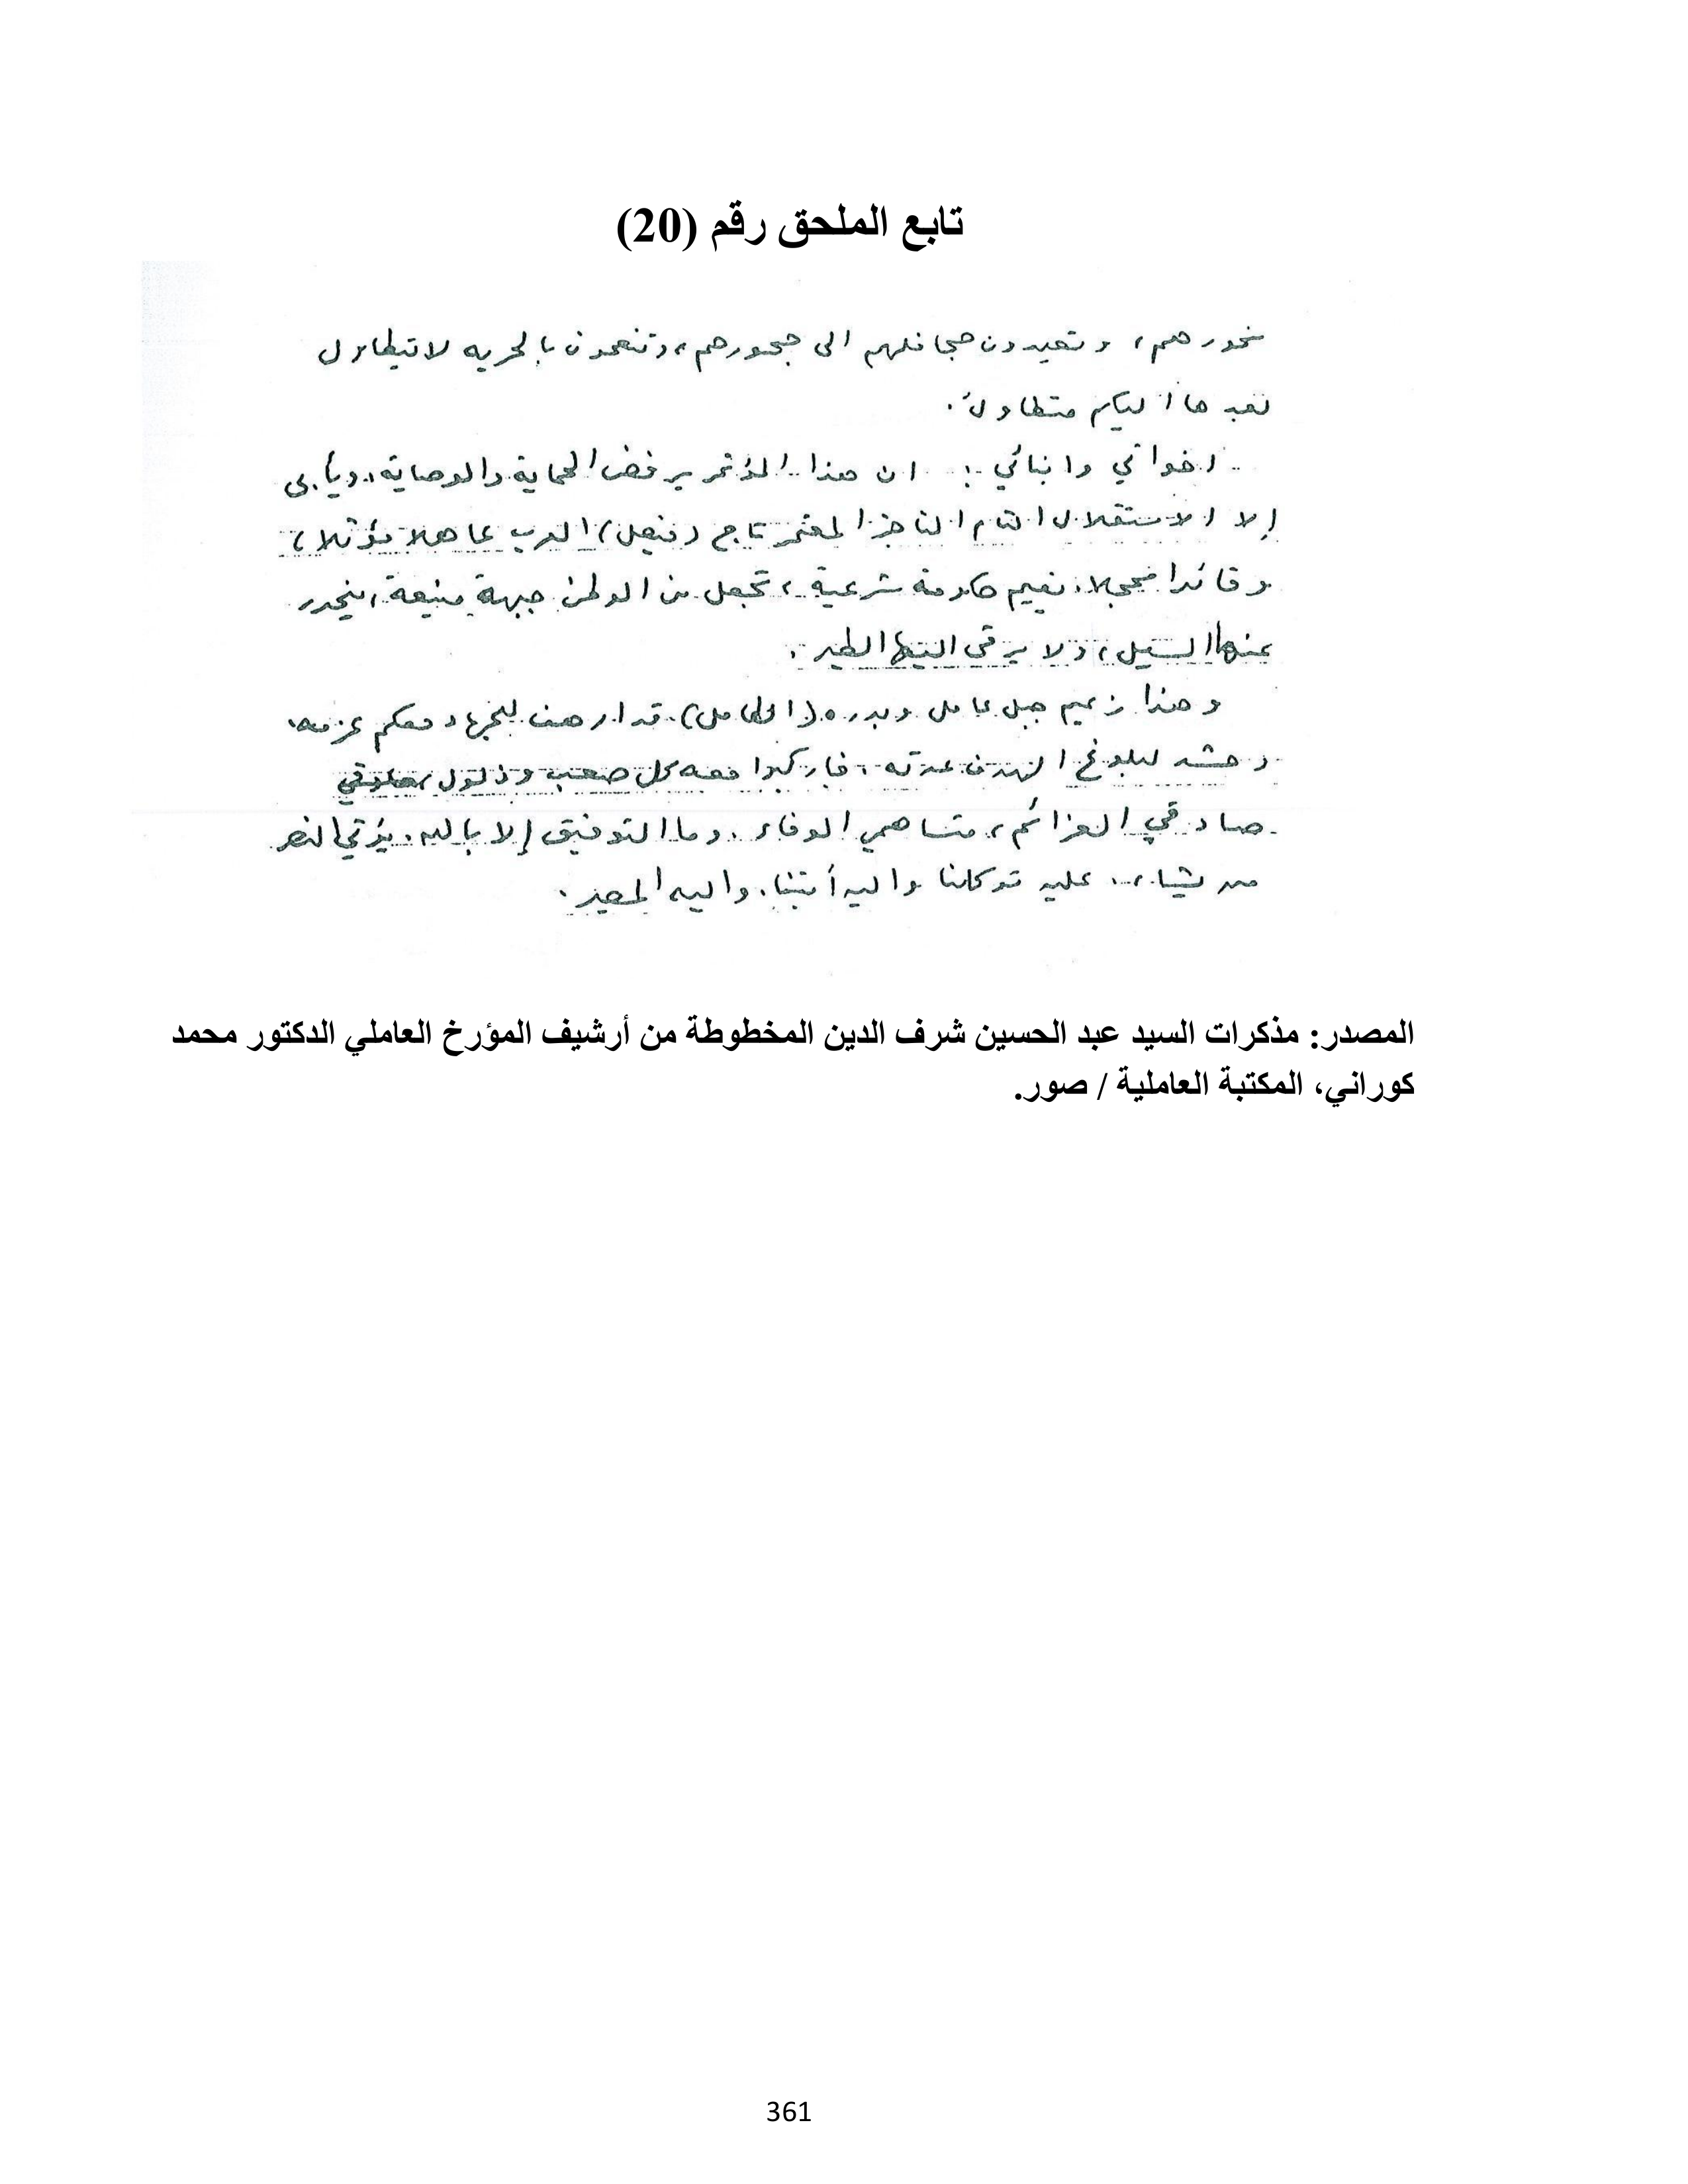 تابع الملحق رقم (20)
نحورهم، وتعيدون جحافلهم الى جحورهم، وتنعمون بالحريه لا تيطاول
بعدها اليكم متطاول.
اخواني وابنائي: ان هذا المؤتمر يرفض الحماية والوصاية، ويأبى
إلا الاستقلال التام الناجز المعتمر تاج (فيصل) العرب عاهلا مؤثلا،
وقائدا محجلا، نقيم حكومة شرعية، تجعل من الوطن جبهة منيعة، ينحدر
عنها السيل، ولا يرقى اليها الطير.
وهذا زعيم جبل عامل وبدره (الكامل) قد ارهف للجهاد معكم عزمه
وحشد لبلوغ الهدف عدته، فاركبوا معه كل صعب وذلول،
صادقي العزائم، متساهمي الوفاء. وما التوفيق إلا بالله. يؤتي النصر
من يشاء، عليه توكلنا واليه أنبنا. واليه المصير.
المصدر: مذكرات السيد عبد الحسين شرف الدين المخطوطة من أرشيف المؤرخ العاملي الدكتور محمد
كوراني، المكتبة العاملية / صور.
361